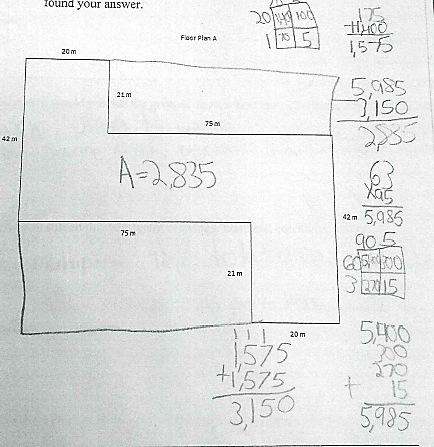 found your answer.
Floor Plan A
20 m
21 m
75 m
42 m
A=2,835
75 m
21 m
42 m
20 m
20
100
1
70
5
175
+1,400
1,575
5,985
3,150
2,835
63
x95
5,985
90 5
60
300
3
270
15
5,400
300
270
+ 15
5,985
1 1 1
1,575
+1,575
3,150